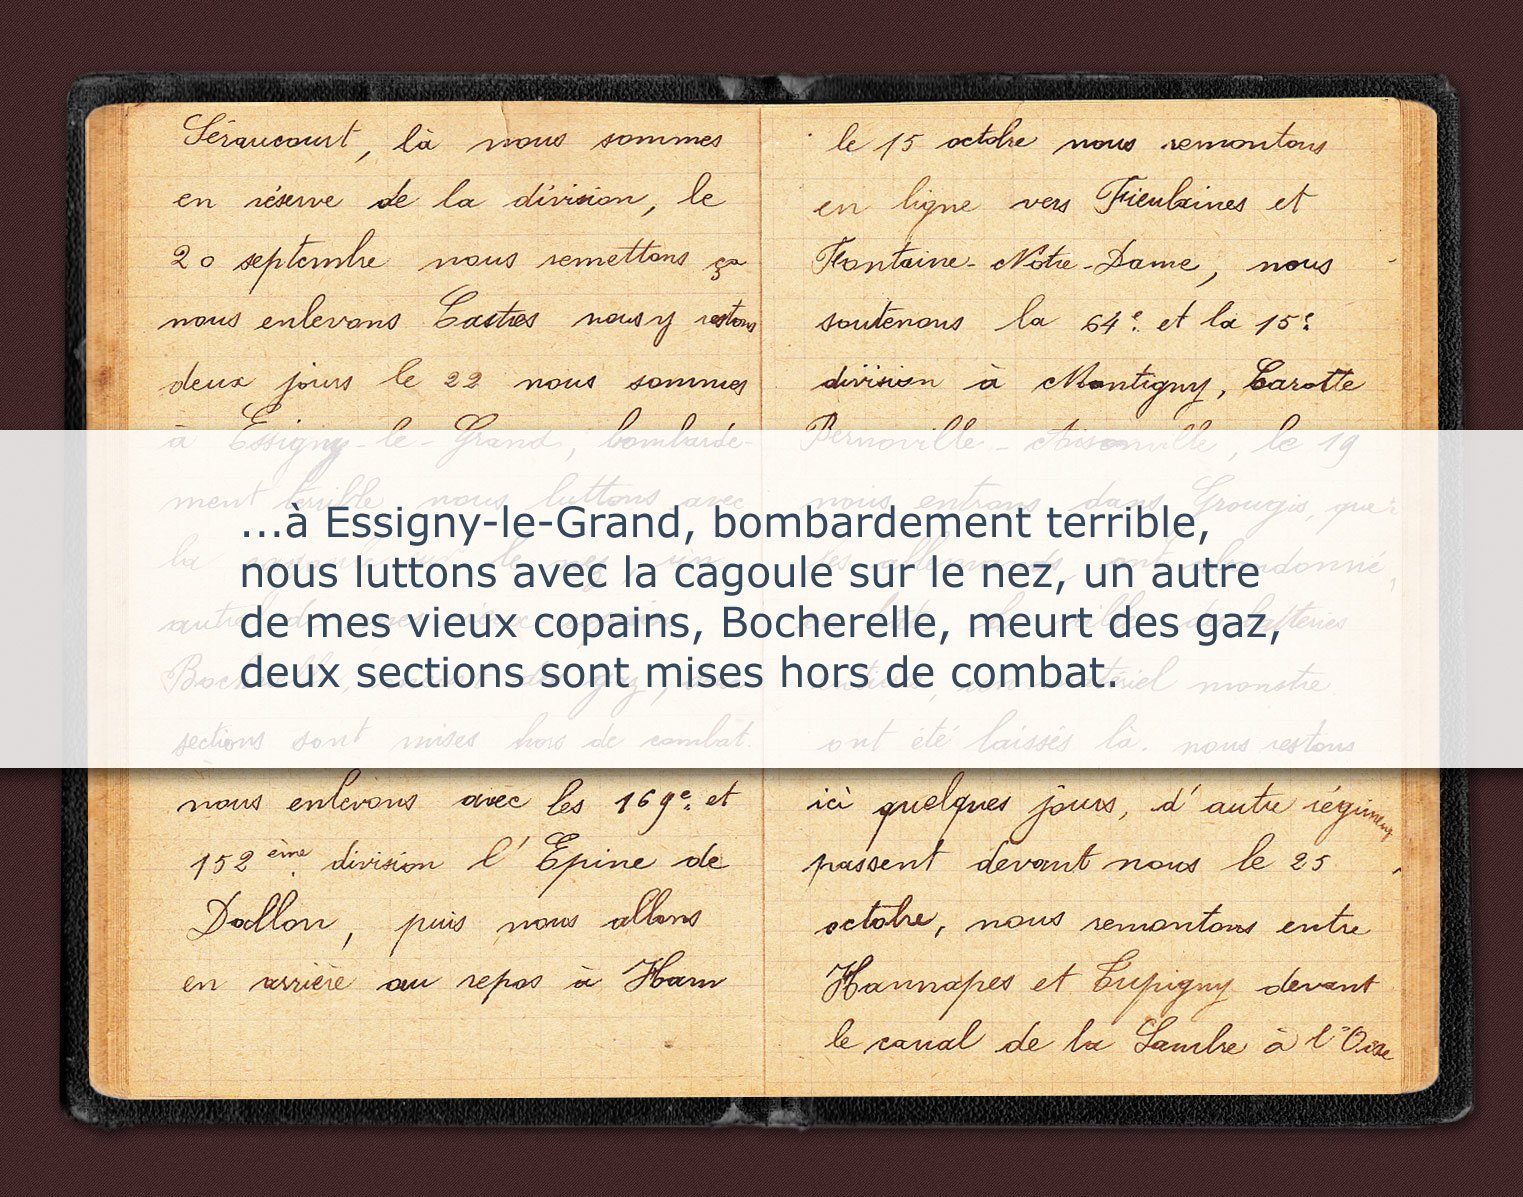 Séraucourt, là nous sommes
en réserve de la division, le
20 septembre nous remettons ça
nous enlevons Castres nous y restons
deux jours le 22 nous sommes
à Essigny-le-Grand, bombarde-
ment terrible nous luttons avec
la
autre de mes vieux
sections sont mises hors de combat.
nous enlevons avec les 169e. et
152ème. division l'Epine de
Dallon, puis nous allons
en arrière au repos à Ham
le 15 octobre nous remontons
en ligne vers Fieulaines et
Fontaine-Notre-Dame, nous
soutenons la 64e. et la 15e.
division à Montigny, Carotte
Bernoville-Aisonville, le 19
nous entrons dans Grougis, que
les allemands ont abandonné,
des batteries
matériel monstre
ont été laissés là. nous restons
ici quelques jours, d'autre régiments
passent devant nous le 25
octobre, nous remontons entre
Hannapes et Tupigny devant
le canal de la Sambre à l'Oise
...à Essigny-le-Grand, bombardement terrible,
nous luttons avec la cagoule sur le nez, un autre
de mes vieux copains, Bocherelle, meurt des gaz,
deux sections sont mises hors de combat.